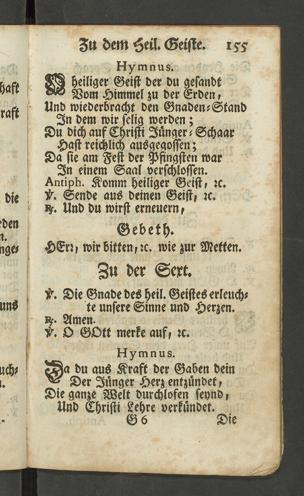 Zu dem Heil. Geiste. 155
Hymnus.
O heiliger Geist der du gesandt
Vom Himmel zu der Erden,
Und wiederbracht den Gnaden-Stand
In dem wir selig werden;
Du dich auf Christi Jünger-Schaar
Hast reichlich ausgegossen;
Da sie am Fest der Pfingsten war
In einem Saal verschlossen.
Antiph. Komm heiliger Geist, ꝛc.
℣. Sende aus deinen Geist, ꝛc.
℟. Und du wirst erneuern,
Gebeth.
HErr, wir bitten, ꝛc. wie zur Metten.
Zu der Sext.
℣. Die Gnade des heil. Geistes erleuch-
te unsere Sinne und Herzen.
℟. Amen.
℣. O GOtt merke auf, ꝛc.
Hymnus.
Da du aus Kraft der Gaben dein
Der Jünger Herz entzündet,
Die ganze Welt durchlofen seynd,
Und Christi Lehre verkündet.
G 6 Die
haft
raft
die
rden
n.
uns